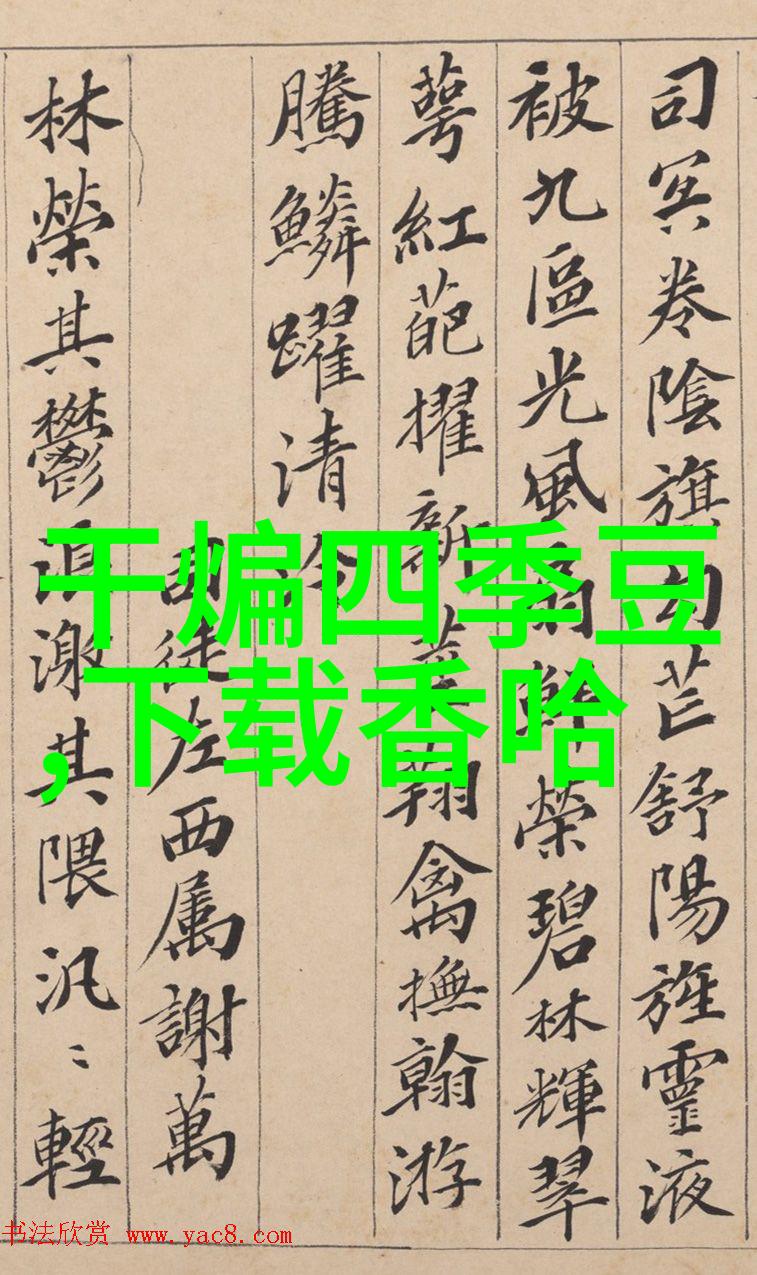 司冥卷陰旗勾芒舒陽旌靈液
被九區光風扇鮮榮碧林輝翠
萼紅葩擢新莖翔禽撫翰游
騰鱗躍清泠
司徒左西属謝萬
林榮其鬱浪激其隈汎〻輕
干煸四季豆
,下载香哈
书法欣赏 www.yac8.com